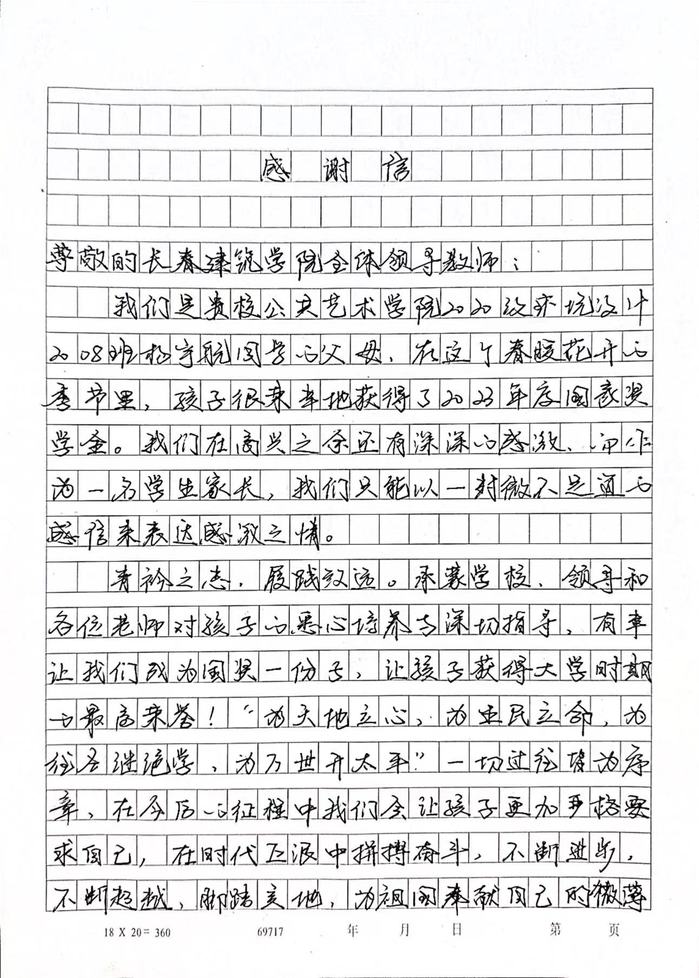 感谢信
尊敬的长春建筑学院全体领导教师：
我们是贵校公共艺术学院2020级环境设计
2008班杨宇航同学的父母，在这个春暖花开的
季节里，孩子很荣幸地获得了2023年度国家奖
学金。我们在高兴之余还有深深的感激、而作
为一名学生家长，我们只能以一封微不足道的
感信来表达感激之情。
青衿之志，履践致远。承蒙学校、领导和
各位老师对孩子的悉心培养与深切指导，有幸
让我们成为国奖一份子，让孩子获得大学时期
的最高荣誉！“为天地立心，为生民立命，为
往圣继绝学，为万世开太平”一切过往皆为序
章，在今后的征程中我们会让孩子更加严格要
求自己，在时代飞浪中拼搏奋斗，不断进步，
不断超越，脚踏实地，为祖国奉献自己的微薄
18 X 20 = 360 69717 年 月 日 第 页